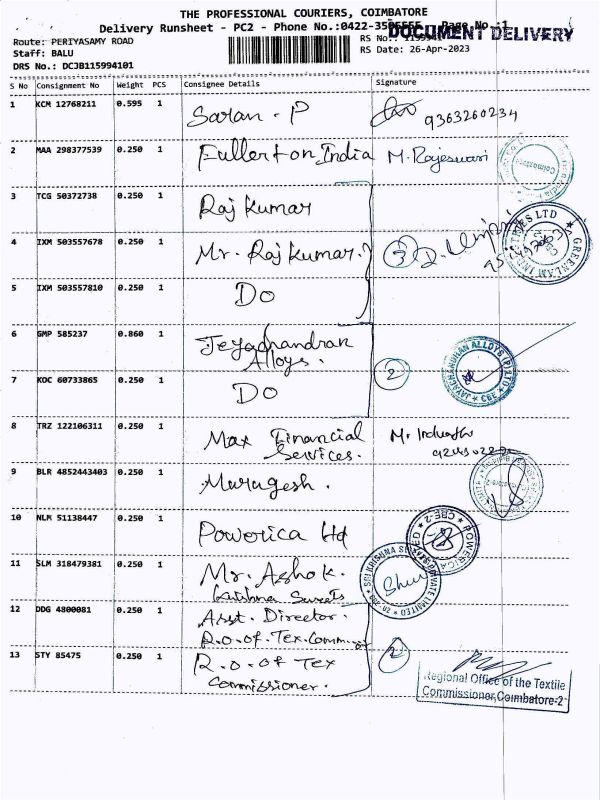 THE PROFESSIONAL COURIERS, COIMBATORE
Delivery Runsheet - PC2 - Phone No.:0422-3505555 Page No :1
DOCUMENT DELIVERY
Route: PERIYASAMY ROAD
RS No.:
Staff: BALU
RS Date: 26-Apr-2023
DRS No.: DCJB115994101
S No Consignment No Weight PCS Consignee Details Signature
1 KCM 12768211 0.595 1 Saran . P 9363260234
2 MAA 298377539 0.250 1 Fullerton India M. Rajeswari
3 TCG 50372738 0.250 1 Raj Kumar
4 IXM 503557678 0.250 1 Mr. Raj Kumar. 3
GREENLAM INDUSTRIES LTD
5 IXM 503557810 0.250 1 Do
6 GMP 585237 0.860 1 Jeyachandran
Alloys.
JAYACHANDRAN ALLOYS (P) LTD CBE
2
7 KOC 60733865 0.250 1 Do
8 TRZ 122106311 0.250 1 Max Financial
Services.
9 BLR 4852443403 0.250 1 Murugesh.
10 NLM 51138447 0.250 1 Powerica ltd
POWERICA LIMITED CBE-2
11 SLM 318479381 0.250 1 Mr. Ashok.
Krishna Sweets
SRI KRISHNA SWEETS PRIVATE LIMITED
12 DDG 4800081 0.250 1 Asst. Director.
R.o.of.Tex.
2
13 STY 85475 0.250 1 R.o.of Tex
Commissioner.
Regional Office of the Textile
Commissioner,Coimbatore-2